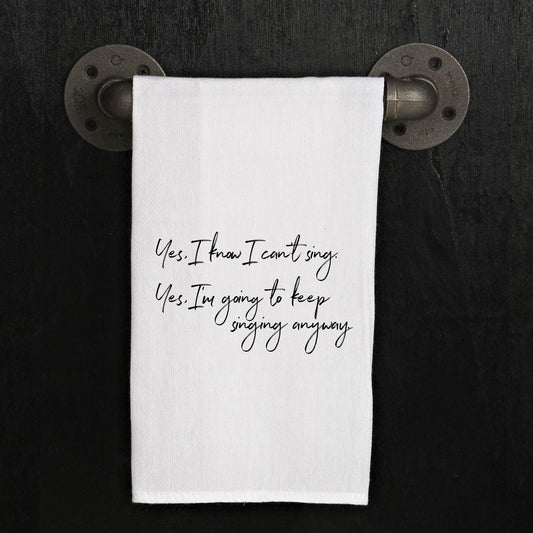 Yes, I know I can't sing.
Yes, I'm going to keep
singing anyway.